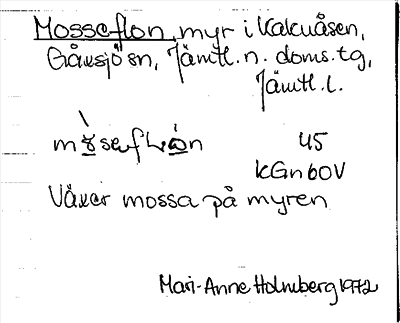 Mosseflon, myr i Kakuåsen,
Gåxsjö sn, Jämtl. n. doms. tg,
Jämtl. l.
45
KGn60V
Växer mossa på myren
Mari-Anne Holmberg 1972